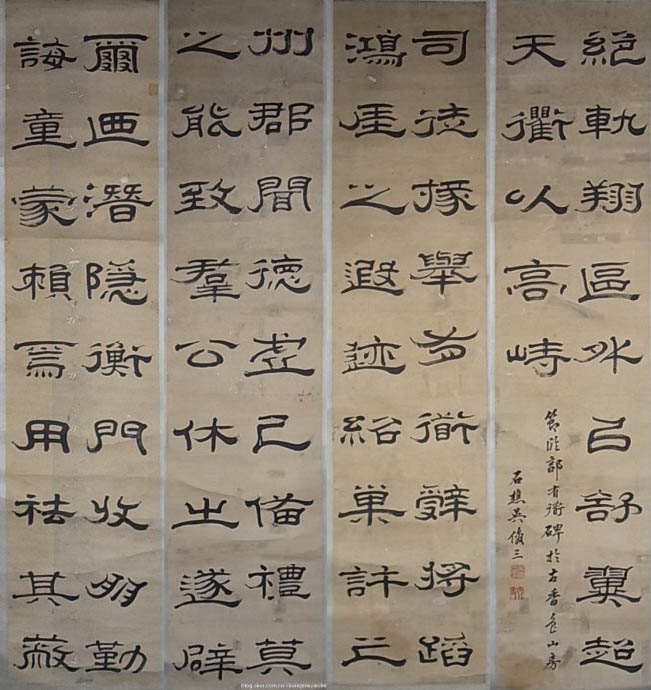 爾迺潛隱衡門收朋勤
誨童蒙賴焉用祛其蔽
州郡聞德虛己備禮莫
之能致羣公休之遂辟
司徒掾舉有衜辭將蹈
鴻厓之遐迹紹巢許之
絕軌翔區外㠯舒翼超
天衢以高峙
節臨郭有衜碑於古香山房
石樵吳俊三